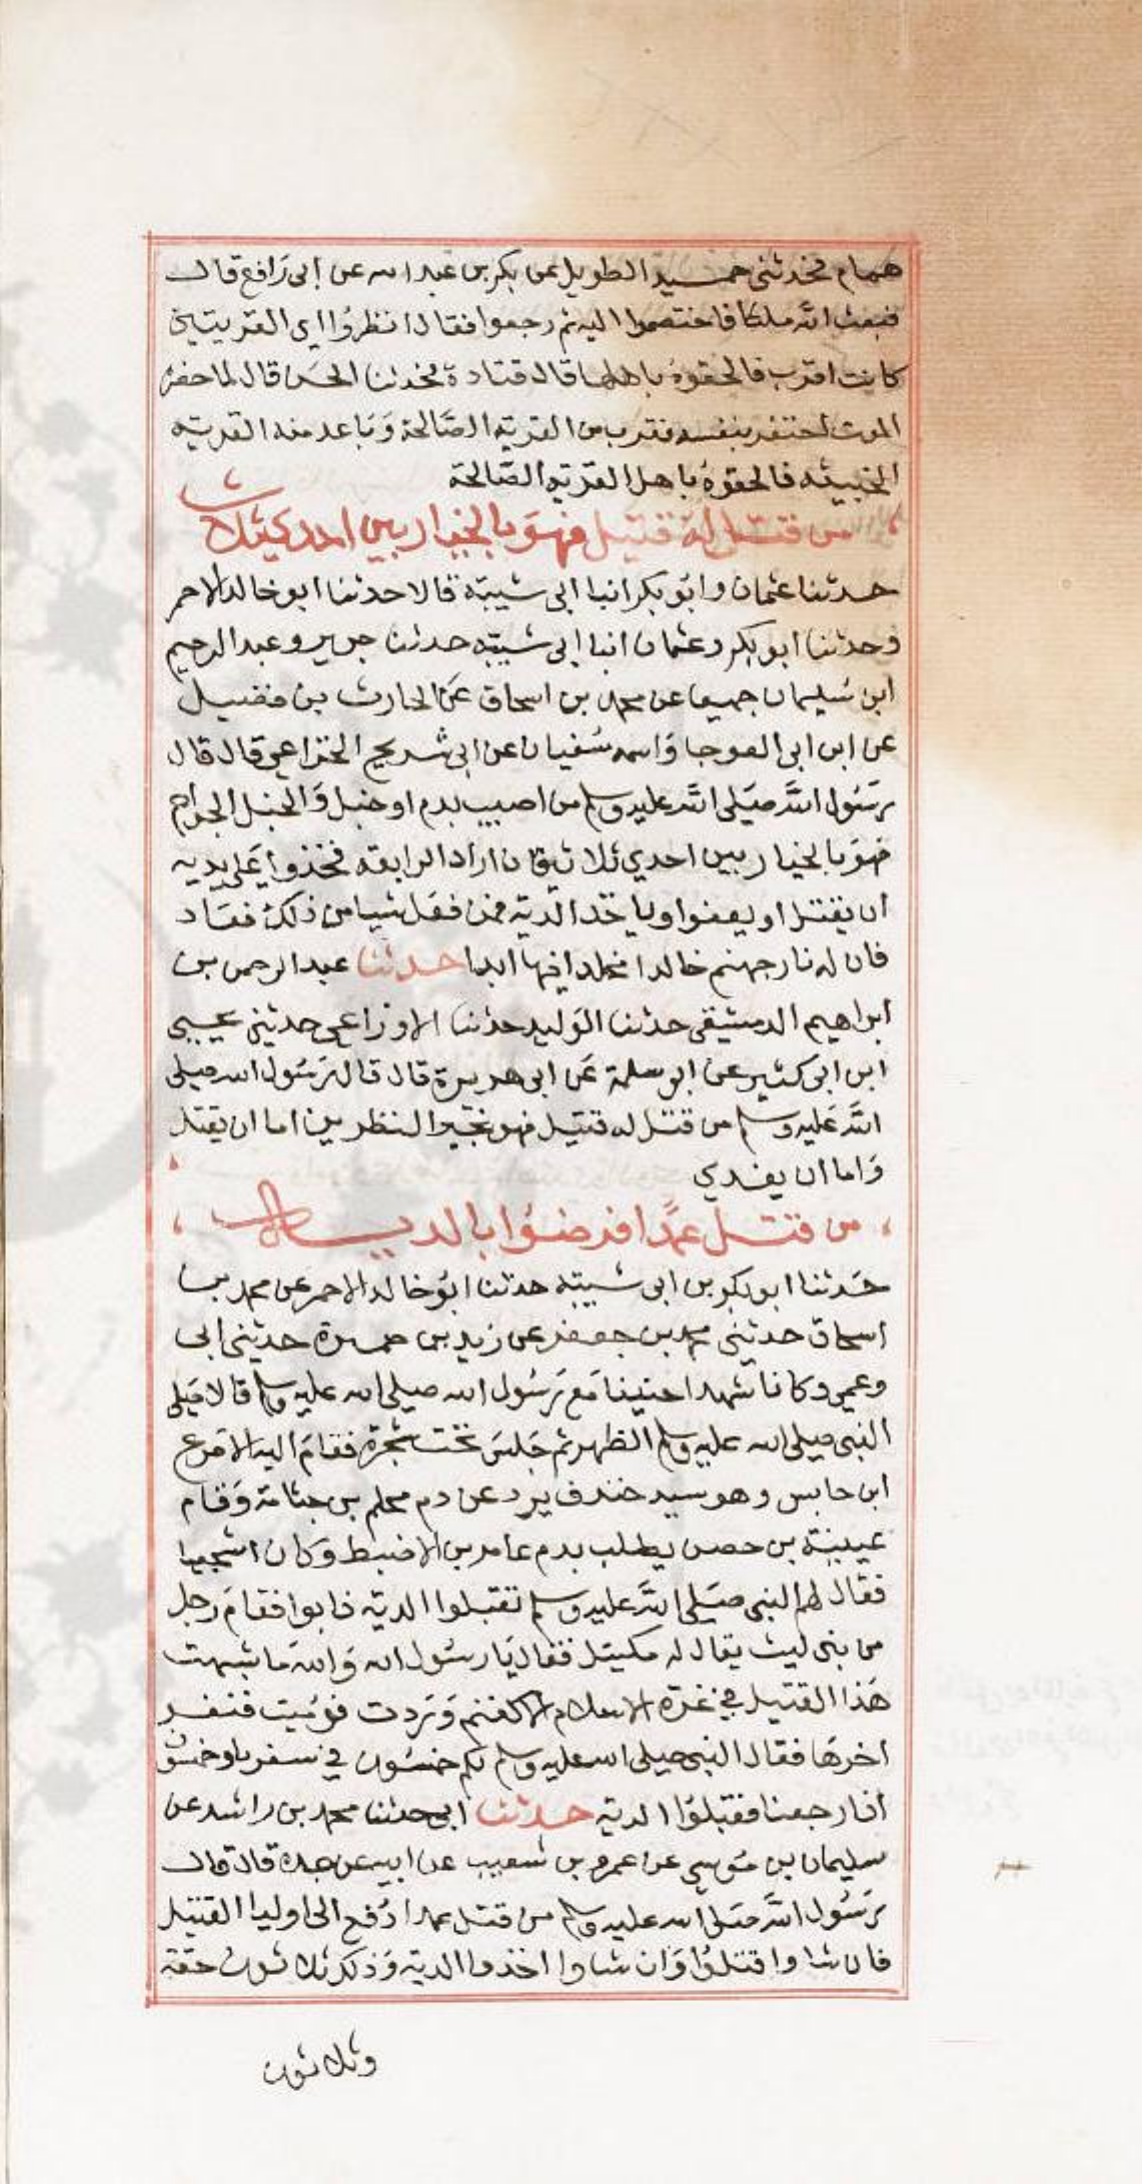 همام فحدثني حميد الطويل عن بكر بن عبد الله عن ابي رافع قال
فبعث الله ملكا فاختصموا اليه ثم رجعوا فقال انظروا اي القريتين
كانت اقرب فالحقوه باهلها قال قتادة فحدثنا الحسن قال لما حضره
الموت احتفز بنفسه فقرب من القرية الصالحة وباعد منه القرية
الخبيثه فالحقوه باهل القرية الصالحة
من قتل له قتيل فهو بالخيار بين احد كيثلاث
حدثنا عثمان وابو بكر انبا ابي شيبة قالا حدثنا ابو خالد الاحمر
وحدثنا ابو بكر وعثمان انبا ابي شيبه حدثنا جرير وعبد الرحيم
ابن سليمان جميعا عن محمد بن اسحاق عن الحارث بن فضيل
عن ابن ابي العوجا واسمه سفيان عن ابي شريح الخزاعي قال قال
رسول الله صلى الله عليه وسلم من اصيب بدم او خبل والخبل الجراح
فهو بالخيار بين احدي ثلاث فان اراد الرابعه فخذوا علي يديه
ان يقتل او يعفوا او ياخذ الدية فمن فعل شيا من ذلك فعاد
فان له نار جهنم خالدا مخلدا فيها ابدا حدثنا عبد الرحمن بن
ابراهيم الدمشقي حدثنا الوليد حدثنا الاوزاعي حدثني يحيى
ابن ابي كثير عن ابو سلمة عن ابي هريرة قال قال رسول الله صلى
الله عليه وسلم من قتل له قتيل فهو بخير النظرين اما ان يقتل
واما ان يفدي
من قتل عمدا فرضوا بالدية
حدثنا ابو بكر بن ابي شيبة حدثنا ابو خالد الاحمر عن محمد بن
اسحاق حدثني محمد بن جعفر عن زيد بن ضميرة حدثني ابي
وعمي وكانا شهدا حنينا مع رسول الله صلى الله عليه وسلم قالا صلى
النبي صلى الله عليه وسلم الظهر ثم جلس تحت شجرة فقام اليه الاقرع
ابن حابس وهو سيد خندف يرد عن دم محلم بن جثامة وقام
عيينة بن حصن يطلب بدم عامر بن الاضبط وكان اشجعيا
فقال لهم النبي صلى الله عليه وسلم تقبلوا الدية فابوا فقام رجل
من بني ليث يقال له مكيتل فقال يا رسول الله والله ما شبهت
هذا القتيل في غرة الاسلام الا كغنم وردت فرميت فنفر
اخرها فقال النبي صلى الله عليه وسلم لكم خمسون في سفرنا وخمسون
اذا رجعنا فقبلوا الدية حدثنا ابي حدثنا محمد بن راشد عن
سليمان بن موسي عن عمرو بن شعيب عن ابيه عن جده قال قال
رسول الله صلى الله عليه وسلم من قتل عمدا دفع الى اوليا القتيل
فان شاوا قتلوا وان شاوا اخذوا الدية وذلك ثلاثون حقة
وثلاثون